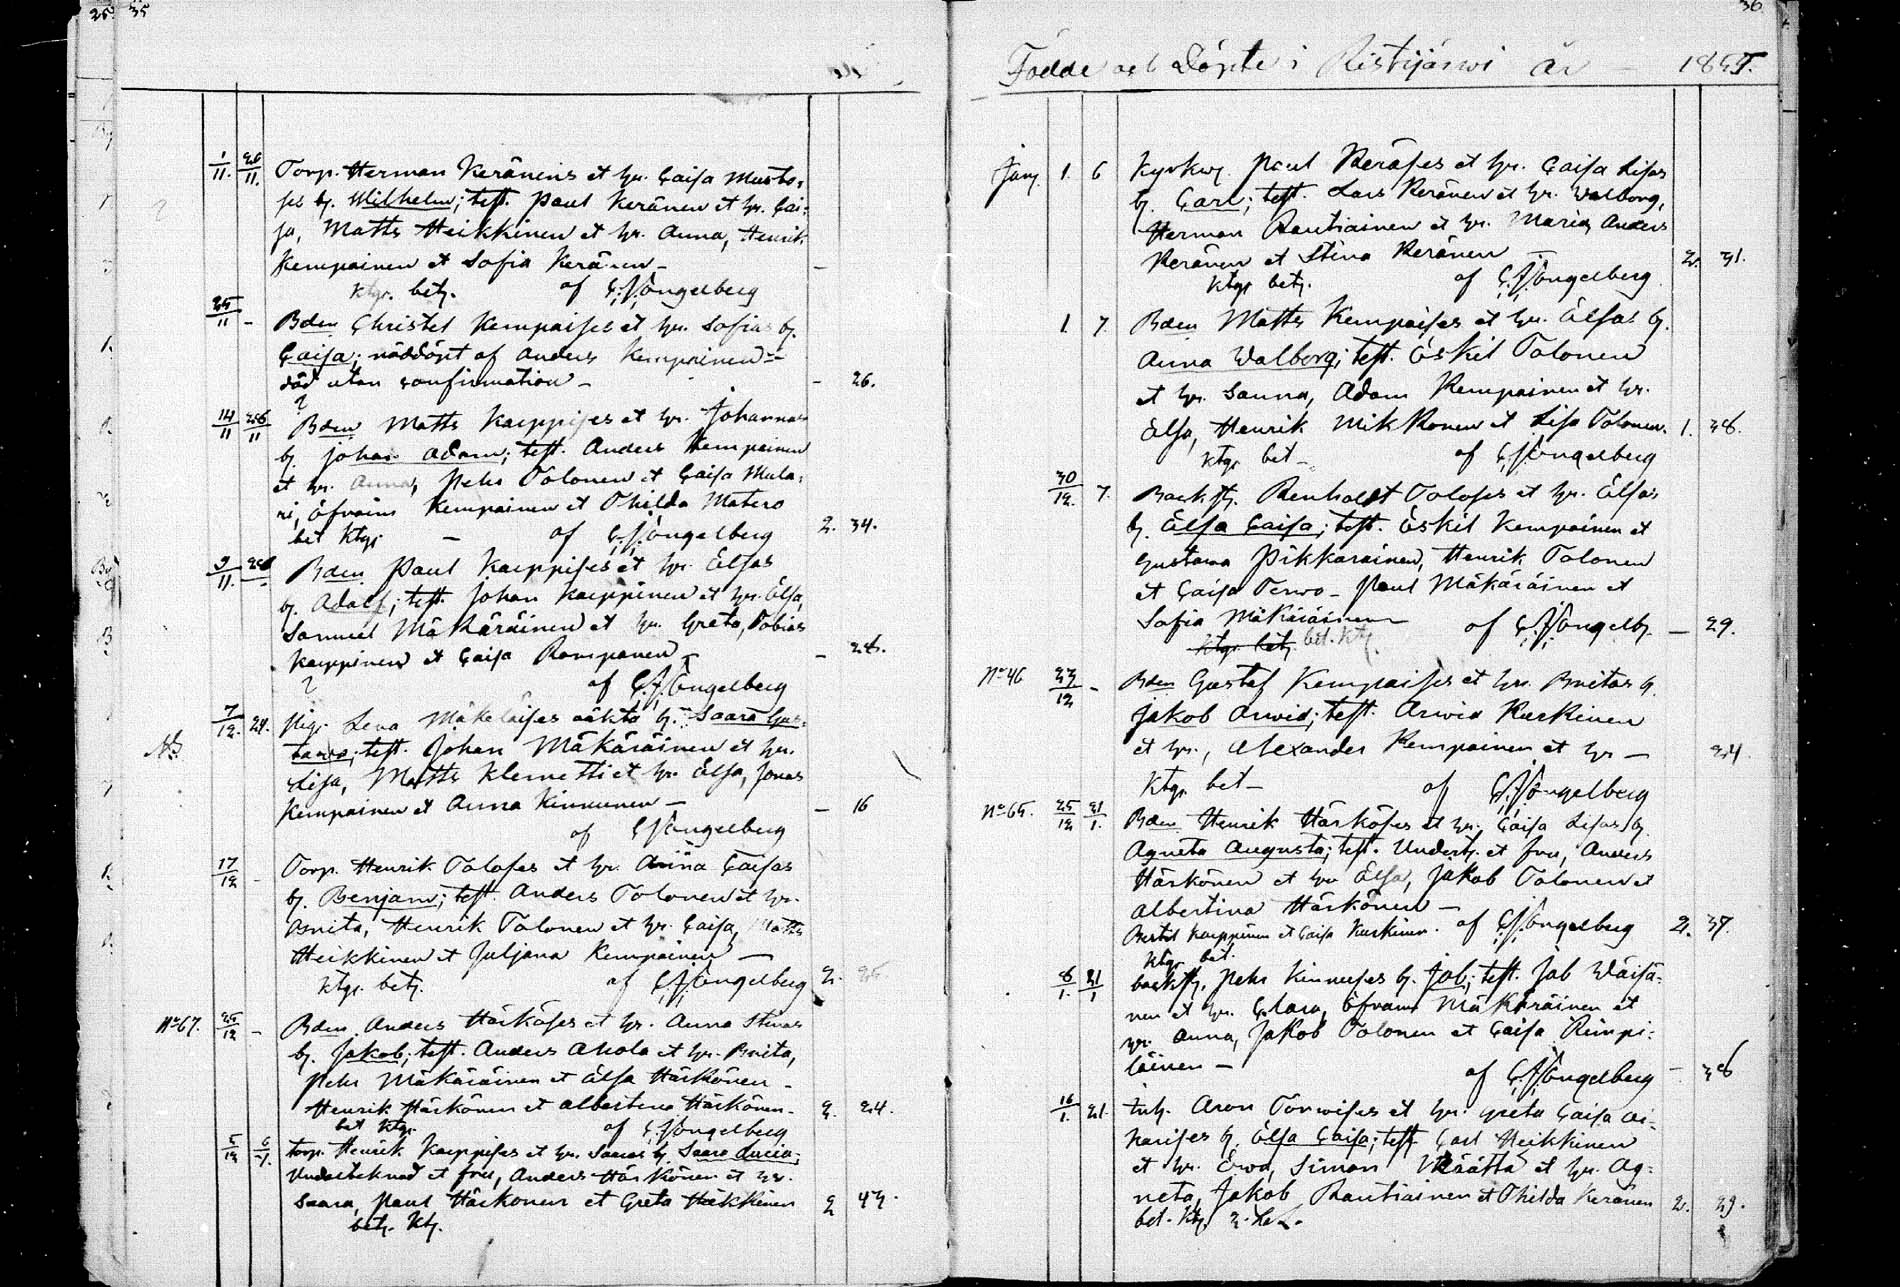 25 35
1/11 26/11 Torp. Herman Keränens et hr. Caisa Musto-
ses b. Wilhelm; test. Paul Keränen et hr. Cai-
sa, Matts Heikkinen et hr. Anna, Henrik
Kempainen et Sofia Keränen –
ktgr. betz. of C.A. Engelberg
25/11 – Bden Christer Kempaises et hr. Sofias b.
Caisa; nöddöpt af Anders Kempainen –
död utan confirmation – – 26.
14/11 26/11 Bden Matts Karppises et hr. Johannas
b. Johan Adam; test. Anders Kempainen
et hr. Anna, Pehr Tolonen et Caisa Mula-
ri, Efraim Kempainen et Thilda Matero
bet ktgr – of C.A. Engelberg 2. 34.
Bden Paul Karppises et hr. Elsas
b. Adolf; test. Johan Karppinen et hr. Elsa,
Samuel Mäkäräinen et hr. Greta, Tobias
Karppinen et Caisa Romponen – – 28.
of C.A. Engelberg
NB 7/12. 24. Pig. Lena Mäkeläises oäkta b. Saara Gus-
tava; test. Johan Mäkäräinen et hr.
Lisa, Matts Klemetti et hr. Elsa, Jonas
Kempainen et Anna Kinnunen – – 16
of C.A. Engelberg
17/12 – Torp. Henrik Toloses et hr. Anna Caisas
b. Benjam; test. Anders Tolonen et hr.
Brita, Henrik Tolonen et hr. Caisa, Matts
Heikkinen et Juljana Kempainen –
ktgr. betz. of C.A. Engelberg 2. 25.
No 67. 25/12 – Bden Anders Härköses et hr. Anna Stinas
b. Jakob; test. Anders Ahola et hr. Brita,
Pehr Mäkäräinen et Elsa Härkönen –
Henrik Härkönen et Albertina Härkönen – 2. 24.
bet ktgr. of C.A. Engelberg
5/12 6/1. Torp. Henrik Karppises et hr. Saaras b. Saara Lucia;
Underteknad et fru, Anders Härkönen et hr.
Saara, Paul Härkonen et Greta Heikkinen 2 42.
betz. ktg.
36
Födde och Döpte i Ristijärwi år – 1855.
Jan. 1. 6 Kyrkw. Paul Keräses et hr. Caisa Lisas
b. Carl; test. Lars Keränen et hr. Walborg,
Herman Rautiainen et hr. Maria, Anders
Keränen et Stina Keränen – 2. 31.
ktgr betz. of C.A. Engelberg
1. 7. Bden Matts Kempaises et hr. Elsas b.
Anna Walborg; test. Eskil Tolonen
et hr. Sanna, Adam Kempainen et hr.
Elsa, Henrik Mikkonen et Lisa Tolonen. 1. 38.
ktgr bet – of C.A. Engelberg
30/12. 7. Backst. Renholdt Toloses et hr. Elsas
b. Elsa Caisa; test. Eskil Kempainen et
Gustava Pikkarainen, Henrik Tolonen
et Caisa Terwo – Paul Mäkäräinen et
Sofia Mäkäräinen of C.A. Engelb. – 29.
ktgr. betz. bet. ktg.
No 46 23/12 – Bden Gustaf Kempaises et hr. Britas b.
Jakob Arwid; test. Arwid Karkinen
et hr., Alexander Kempainen et hr – 24
ktgr bet – of C.A. Engelberg
No 65. 25/12 21/1. Bden Henrik Härköses et hr. Caisa Lisas b.
Agneta Augusta; test. Undert. et fru, Anders
Härkönen et hr. Elsa, Jakob Tolonen et
Albertina Härkönen –
Bertil Karppinen et Caisa Karkinen. of C.A. Engelberg 2. 37.
ktgr. bet.
8/1. 21/1 backst. Pehr Kinnuses b. Job; test. Job Wäisä-
nen et hr. Clara, Efraim Mäkäräinen et
hr. Anna, Jakob Tolonen et Caisa Kempi-
läinen – of C.A. Engelberg – 36
16/1. 21. Inh. Aron Torwises et hr. Greta Caisa Ai-
narises b. Elsa Caisa; test. Carl Heikkinen
et hr. Ewa, Simon Määttä et hr. Ag-
neta, Jakob Rautiainen et Thilda Keränen 2. 29.
bet. ktg.